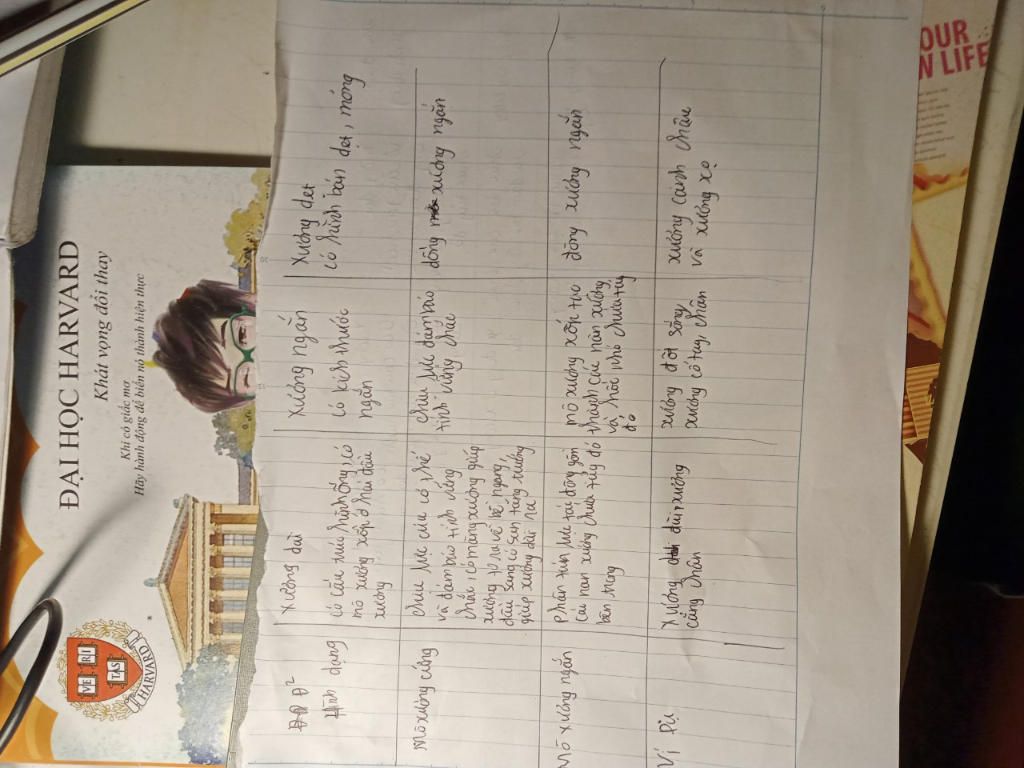 ĐẠI HỌC HARVARD
Khát vọng đổi thay
Khi có giấc mơ
Hãy hành động để biến nó thành hiện thực
VE RI
TAS
HARVARD
OUR
N LIFE
Xương dài
Xương ngắn
Xương dẹt
Hình dạng
có cấu trúc hình ống, có
mô xương xốp ở hai đầu
xương
có kích thước
ngắn
có hình bán dẹt, mỏng
Mô xương cứng
chịu lực của cơ thể
và đảm bảo tính vững
chắc, có màng xương giúp
xương to ra về bề ngang,
đầu sang có sụn tăng trưởng
giúp xương dài ra
chịu lực đảm bảo
tính vững chắc
giống xương ngắn
Mô xương ngắn
phân tán lực tác động gồm
các nan xương chứa tủy đỏ
bên trong
mô xương xốp tạo
thành các nan xương,
và hốc nhỏ chứa tủy
đỏ
giống xương ngắn
Ví Dụ
Xương dài, xương
cẳng chân
xương đốt sống,
xương cổ tay, chân
xương cánh chậu
và xương sọ